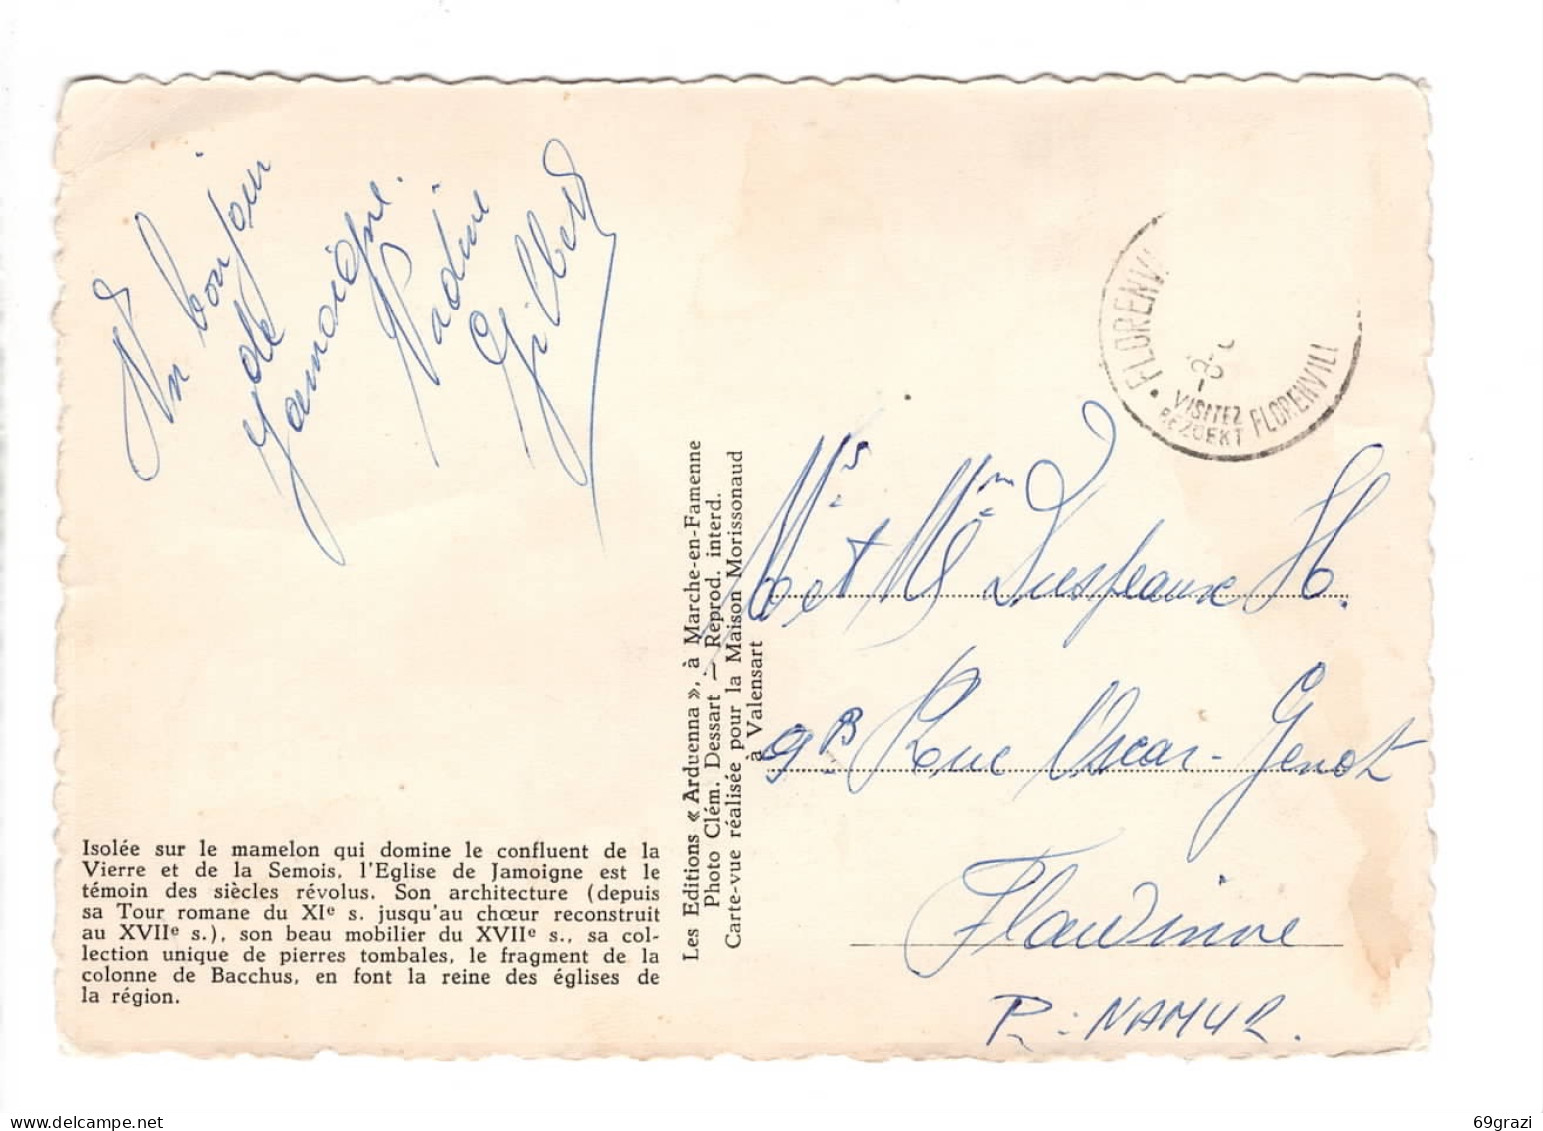 Un bonjour
de
Jamoigne.
Nadine
Gilbert
Isolée sur le mamelon qui domine le confluent de la
Vierre et de la Semois, l'Eglise de Jamoigne est le
témoin des siècles révolus. Son architecture (depuis
sa Tour romane du XIe s. jusqu'au chœur reconstruit
au XVIIe s.), son beau mobilier du XVIIe s., sa col-
lection unique de pierres tombales, le fragment de la
colonne de Bacchus, en font la reine des églises de
la région.
Les Editions « Arduenna », à Marche-en-Famenne
Photo Clém. Dessart — Reprod. interd.
Carte-vue réalisée pour la Maison Morissonaud
à Valensart
FLORENV
VISITEZ
BEZOEKT FLORENVILL
et H.
9B Rue Oscar-Genot
Flawinne
P: NAMUR.
delcampe.net
69grazi